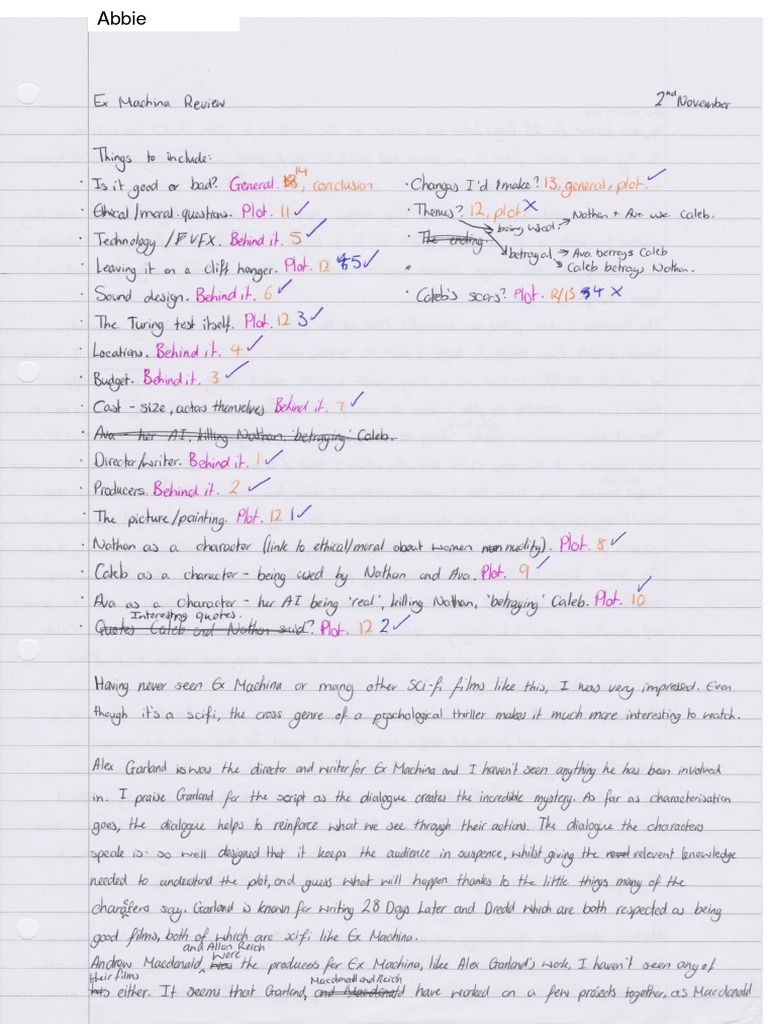 Abbie
Ex Machina Review 2nd November
Things to include:
· Is it good or bad? General. 14, conclusion
· Changes I'd make? 13, general, plot. ✓
· Ethical/moral questions. Plot. 11 ✓
· Themes? 12, plot X
being used → Nathan + Ava use Caleb.
betrayal → Ava berrays Caleb
Caleb betrays Nathan.
· Technology / VFX. Behind it. 5 ✓
· The ending.
· Leaving it on a cliff hanger. Plot. 12 5 ✓
· Sound design. Behind it. 6 ✓
· Caleb's scars? Plot. 12/13 4 X
· The Turing test itself. Plot. 12 3 ✓
· Locations. Behind it. 4 ✓
· Budget. Behind it. 3 ✓
· Cast - size, actors themselves Behind it. 7 ✓
· Ava - her AI, killing Nathan, 'betraying' Caleb.
· Director/writer. Behind it. 1 ✓
· Producers. Behind it. 2 ✓
· The picture/painting. Plot. 12 1 ✓
· Nathan as a character (link to ethical/moral about women nudity). Plot. 8 ✓
· Caleb as a character - being used by Nathan and Ava. Plot. 9 ✓
· Ava as a character - her AI being 'real', killing Nathan, 'betraying' Caleb. Plot. 10 ✓
Interesting quotes.
· Quotes Caleb and Nathan said? Plot. 12 2 ✓
Having never seen Ex Machina or many other sci-fi films like this, I was very impressed. Even
though it's a scifi, the cross genre of a psychological thriller makes it much more interesting to watch.
Alex Garland was the director and writer for Ex Machina and I haven't seen anything he has been involved
in. I praise Garland for the script as the dialogue creates the incredible mystery. As far as characterisation
goes, the dialogue helps to reinforce what we see through their actions. The dialogue the characters
speak is so well designed that it keeps the audience in suspence, whilst giving the relevent knowledge
needed to understand the plot, and guess what will happen thanks to the little things many of the
characters say. Garland is known for writing 28 Days Later and Dredd which are both respected as being
good films, both of which are scifi like Ex Machina.
Andrew Macdonald and Allon Reich were the producers for Ex Machina, like Alex Garland's work, I haven't seen any of
their films either. It seems that Garland, Macdonald and Reich have worked on a few projects together, as Macdonald